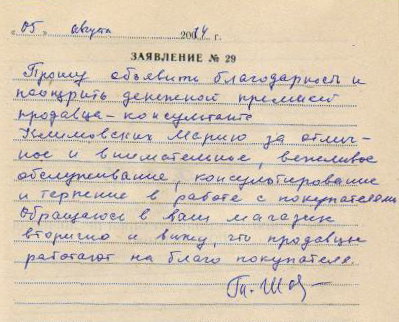 „05“ августа 2014 г.
ЗАЯВЛЕНИЕ № 29
Прошу объявить благодарность и
поощрить денежной премией
продавца-консультанта
Климовских Марию за отлич-
ное и внимательное, вежливое
обслуживание, консультирование
и терпение в работе с покупателями
Обращаюсь в ваш магазин
вторично и вижу, что продавцы
работают на благо покупателя.